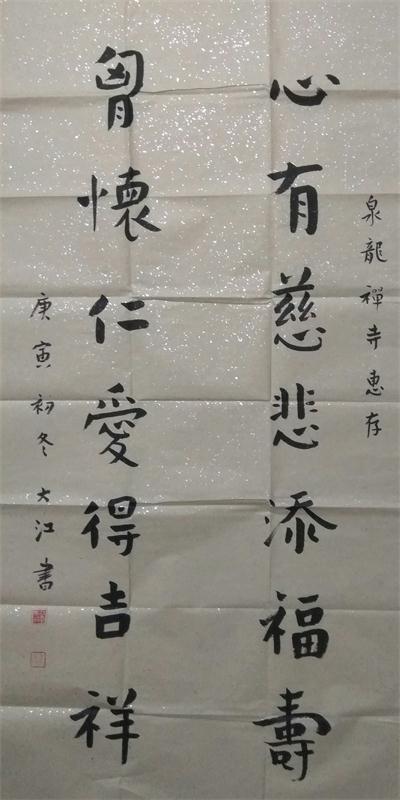 泉龍禪寺惠存
心有慈悲添福壽
胷懷仁愛得吉祥
庚寅初冬大江書